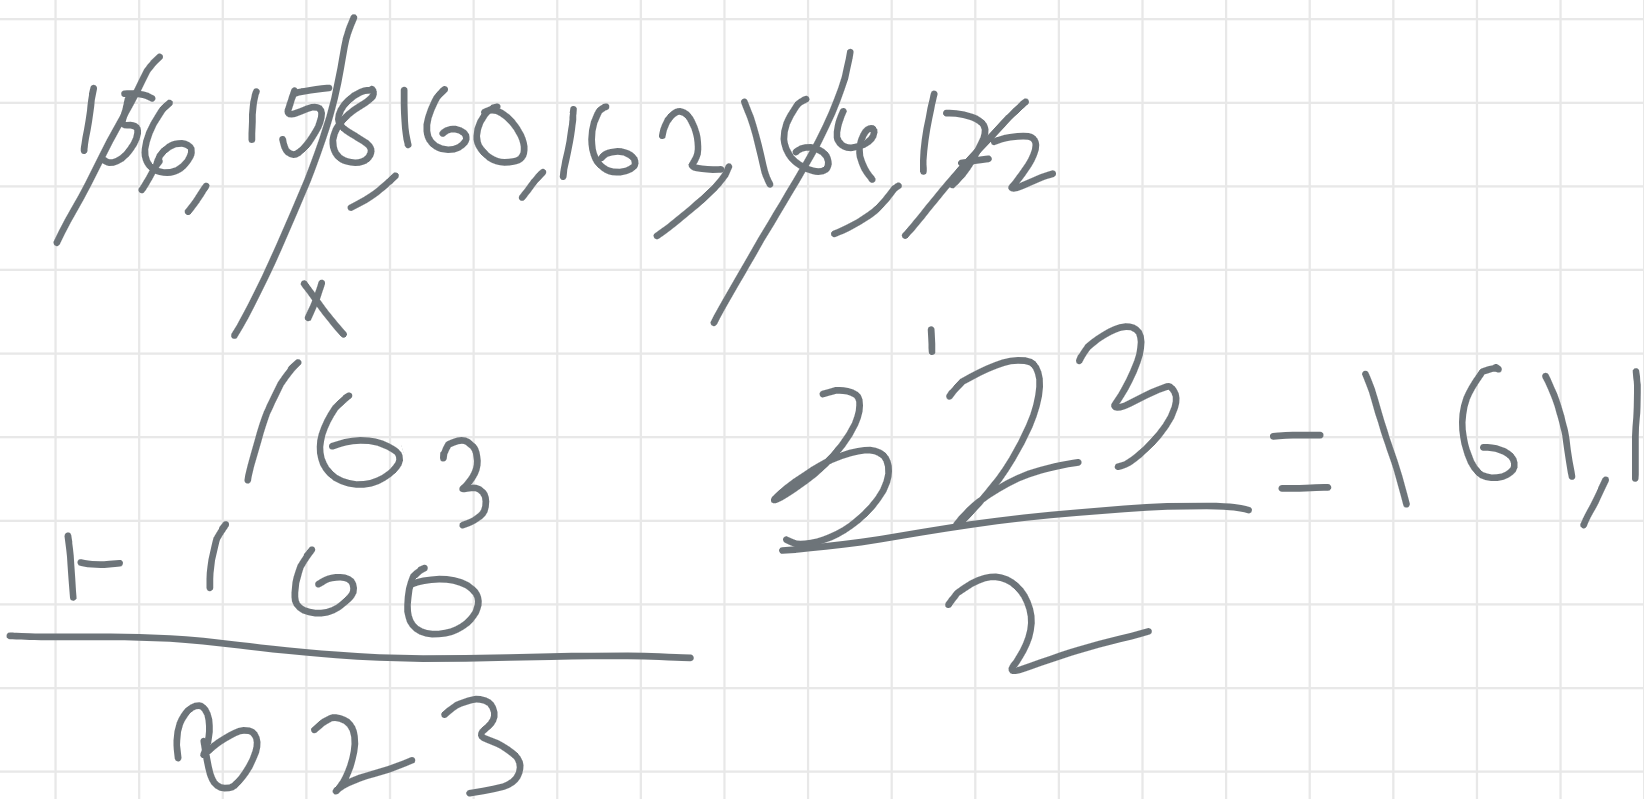 156, 158, 160, 162, 164, 172
x
163
+ 160
323
323
2
= 161,1